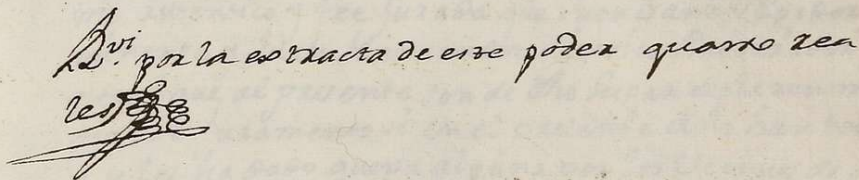 Rvi por la extracta de este poder quatro rea
les